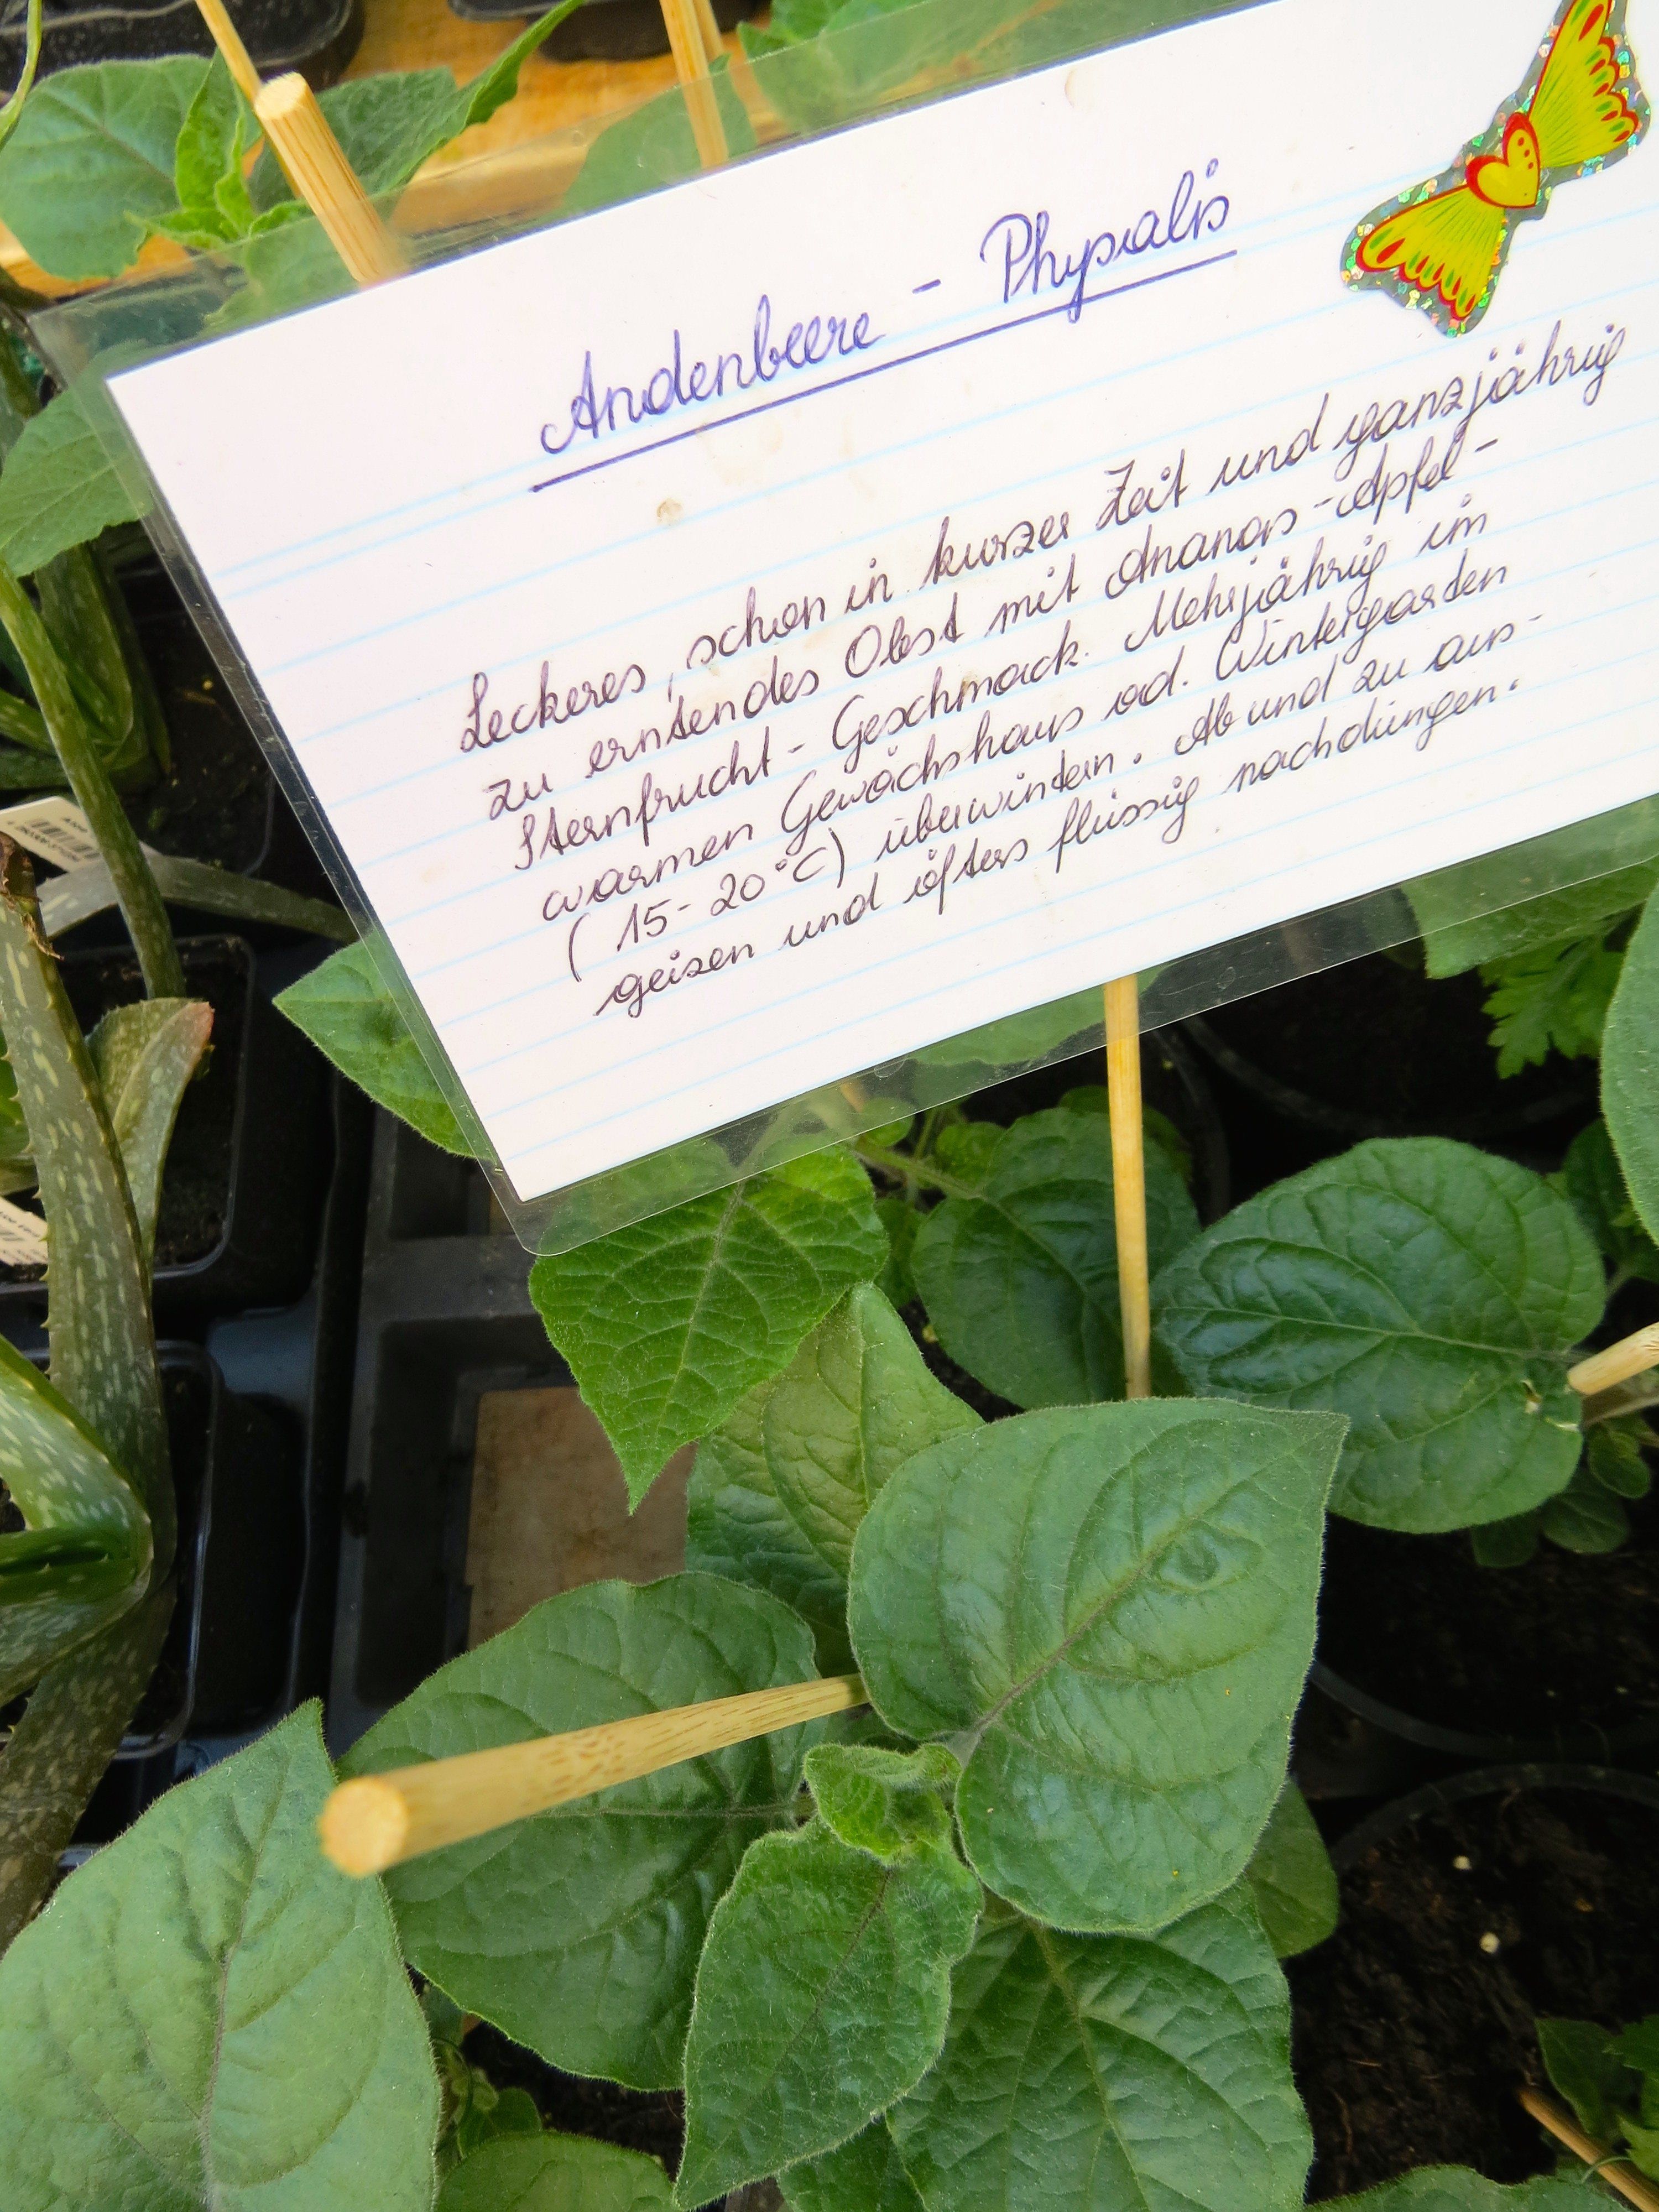 Andenbeere - Physalis
Leckeres, schon in kurzer Zeit und ganzjährig
zu erntendes Obst mit Ananas-Apfel-
Sternfrucht-Geschmack. Mehrjährig im
warmen Gewächshaus od. Wintergarden
(15-20°C) überwintern. Ab und zu aus-
geizen und öfters flüssig nachdüngen.